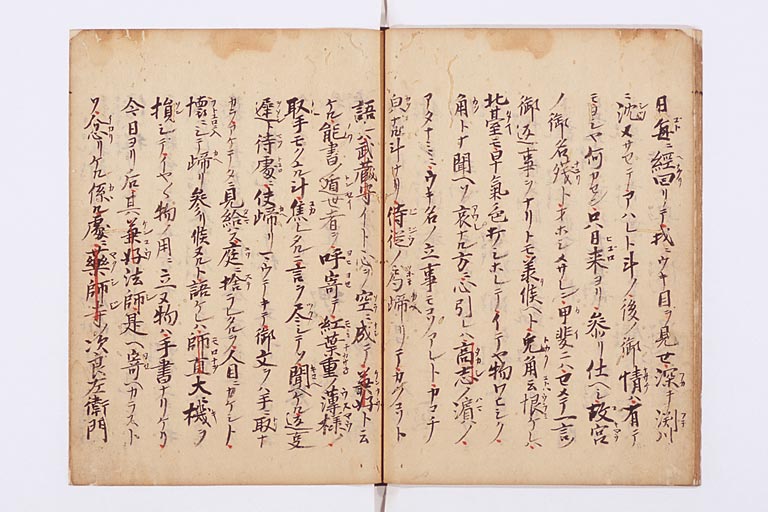 日毎ニ經回リテ我ニウキ目ヲ見セ深キ渕川
ニ沈メサセテアハレト斗ノ後ノ御情ケ有テ
モヨシヤ何カセン只日来ヨリ参リ仕ヘシ故宮
ノ御名残トオホシメサレン甲斐ニハセメテ一言ノ
御返事ヲナリトモ兼候ヘト兎角云恨ケレハ
北臺モ早氣色打シホレテイテヤ物ワヒシク
角トナ聞ヘソ哀ナル方ニ心引レハ高志ノ濱ノ
アタナミニウキ名ノ立事モコソアレトカコチ
貌ナル斗ナリ侍従ノ局歸リテカクコソト
語レハ武蔵守イト心ヲ空ニ成テ兼好ト云
ケル能書ノ遁世者ヲ呼寄テ紅葉重ノ薄様ノ
取手モクユル斗ニ焦レタルニ言ヲ尽シテソ聞ヘケル返事
遅ト待處ニ使歸リマウテキテ御文ヲハ手ニ取ナ
カラアケテタニ見給ハス庭ニ捨ラレタルヲ人目ニカケシト
懐ニシテ歸リ参リ候ヌルト語ケレハ師直大ニ機ヲ
損シテイヤ〱物ノ用ニ立ヌ物ハ手書ナリケリ
今日ヨリ后其兼好法師是ヘ寄ヘカラスト
ソ忿リケル係ル處ニ藥師寺ノ次良左衛門